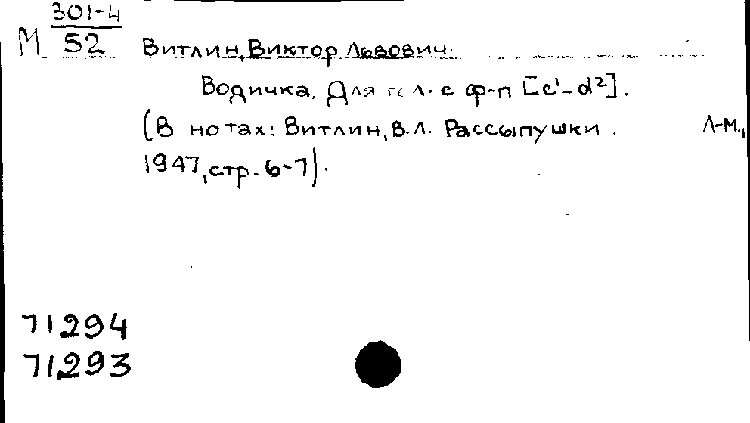 301-4
М 52
Витлин, Виктор Львович.
Водичка. Для гол. с ф-п [c¹-d²].
(В нотах: Витлин, В.Л. Рассыпушки. Л-М.,
1947, стр. 6-7).
71294
71293